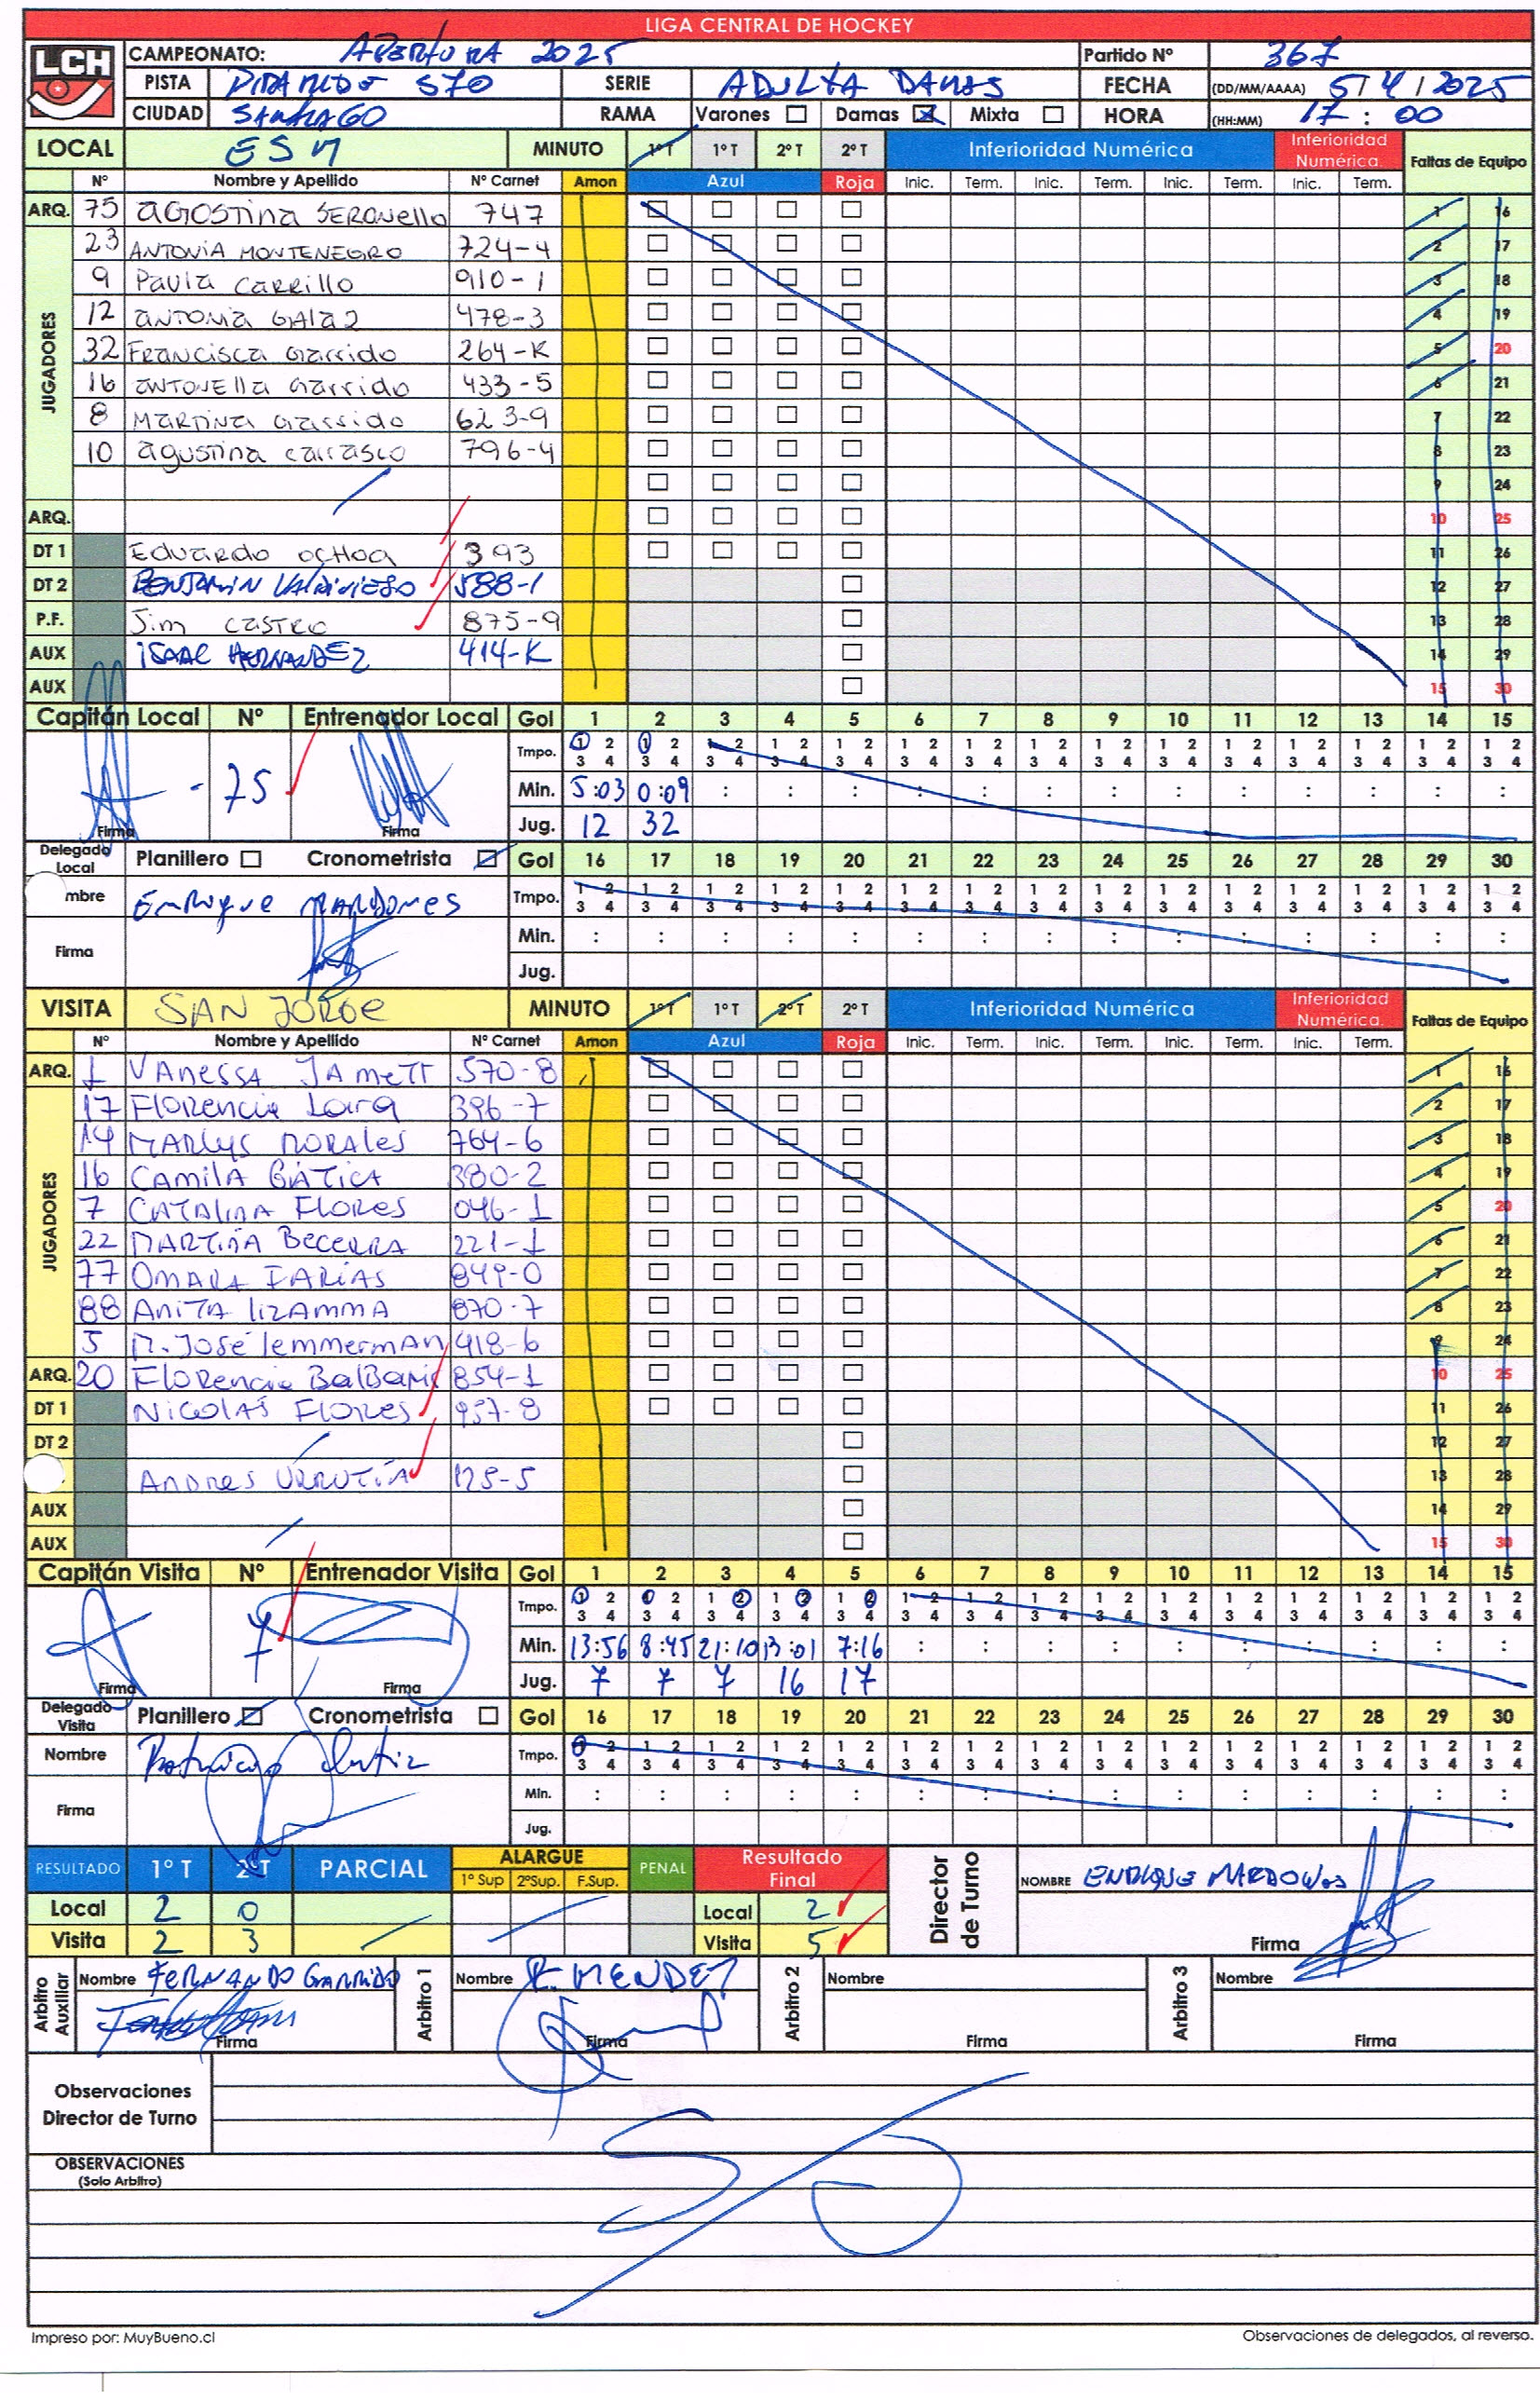 LIGA CENTRAL DE HOCKEY
LCH
CAMPEONATO: APERTURA 2025 Partido Nº 367
PISTA 570 SERIE ADULTA DAMAS FECHA (DD/MM/AAAA) 5/4/2025
CIUDAD SANTIAGO RAMA Varones Damas Mixta HORA (HH:MM) 17:00
LOCAL ESM MINUTO 1º T 1º T 2º T 2º T Inferioridad Numérica Inferioridad Numérica. Faltas de Equipo
Nº Nombre y Apellido Nº Carnet Amon Azul Roja Inic. Term. Inic. Term. Inic. Term. Inic. Term.
ARQ. 75 AGOSTINA SERONELLO 747 1 16
JUGADORES
23 ANTONIA MONTENEGRO 724-4 2 17
9 Paula Carrillo 910-1 3 18
12 ANTONIA GALAZ 478-3 4 19
32 Francisca Garrido 264-K 5 20
16 ANTONELLA Garrido 433-5 6 21
8 MARTINA Garrido 623-9 7 22
10 agustina carrasco 796-4 8 23
9 24
ARQ. 10 25
DT 1 EDUARDO OCHOA 393 11 26
DT 2 BENJAMIN VALDIVIESO 588-1 12 27
P.F. Jim CASTRO 875-9 13 28
AUX ISAAC HERNANDEZ 414-K 14 29
AUX 15 30
Capitán Local Nº Entrenador Local Gol 1 2 3 4 5 6 7 8 9 10 11 12 13 14 15
Tmpo. 1 2 3 4 1 2 3 4 1 2 3 4 1 2 3 4 1 2 3 4 1 2 3 4 1 2 3 4 1 2 3 4 1 2 3 4 1 2 3 4 1 2 3 4 1 2 3 4 1 2 3 4 1 2 3 4 1 2 3 4
- 75 Min. 5:03 0:09 : : : : : : : : : : : : :
Firma Firma Jug. 12 32
Delegado Local Planillero Cronometrista Gol 16 17 18 19 20 21 22 23 24 25 26 27 28 29 30
mbre Enrique MARDONES Tmpo. 1 2 3 4 1 2 3 4 1 2 3 4 1 2 3 4 1 2 3 4 1 2 3 4 1 2 3 4 1 2 3 4 1 2 3 4 1 2 3 4 1 2 3 4 1 2 3 4 1 2 3 4 1 2 3 4 1 2 3 4
Firma Min. : : : : : : : : : : : : : : :
Jug.
VISITA SAN JORGE MINUTO 1º T 1º T 2º T 2º T Inferioridad Numérica Inferioridad Numérica. Faltas de Equipo
Nº Nombre y Apellido Nº Carnet Amon Azul Roja Inic. Term. Inic. Term. Inic. Term. Inic. Term.
ARQ. 1 VANESSA JAMETT 570-8 1 16
JUGADORES
17 Florencia Lara 396-7 2 17
14 MARLYS MORALES 764-6 3 18
16 CAMILA BÁTICA 380-2 4 19
7 CATALINA FLORES 046-1 5 20
22 MARTINA BECERRA 221-1 6 21
77 OMARA FARÍAS 849-0 7 22
88 ANITA LIZAMMA 870-7 8 23
5 M. José Lemmerman 418-6 9 24
ARQ. 20 Florencia 854-1 10 25
DT 1 NICOLÁS FLORES 957-8 11 26
DT 2 12 27
ANDRES URRUTIA 125-5 13 28
AUX 14 29
AUX 15 30
Capitán Visita Nº Entrenador Visita Gol 1 2 3 4 5 6 7 8 9 10 11 12 13 14 15
Tmpo. 1 2 3 4 1 2 3 4 1 2 3 4 1 2 3 4 1 2 3 4 1 2 3 4 1 2 3 4 1 2 3 4 1 2 3 4 1 2 3 4 1 2 3 4 1 2 3 4 1 2 3 4 1 2 3 4 1 2 3 4
7 Min. 13:56 8:45 21:10 13:01 7:16 : : : : : : : : : :
Firma Firma Jug. 7 7 7 16 17
Delegado Visita Planillero Cronometrista Gol 16 17 18 19 20 21 22 23 24 25 26 27 28 29 30
Nombre Tmpo. 1 2 3 4 1 2 3 4 1 2 3 4 1 2 3 4 1 2 3 4 1 2 3 4 1 2 3 4 1 2 3 4 1 2 3 4 1 2 3 4 1 2 3 4 1 2 3 4 1 2 3 4 1 2 3 4 1 2 3 4
Firma Min. : : : : : : : : : : : : : : :
Jug.
RESULTADO 1º T 2º T PARCIAL ALARGUE 1º Sup 2ºSup. F.Sup. PENAL Resultado Final Director de Turno NOMBRE ENRIQUE MARDONES
Local 2 0 Local 2
Visita 2 3 Visita 5 Firma
Arbitro Auxiliar Nombre FERNANDO GARRIDO Arbitro 1 Nombre R. MENDEZ Arbitro 2 Nombre Arbitro 3 Nombre
Firma Firma Firma Firma
Observaciones
Director de Turno
OBSERVACIONES
(Solo Arbitro)
S/O
Impreso por: MuyBueno.cl Observaciones de delegados, al reverso.